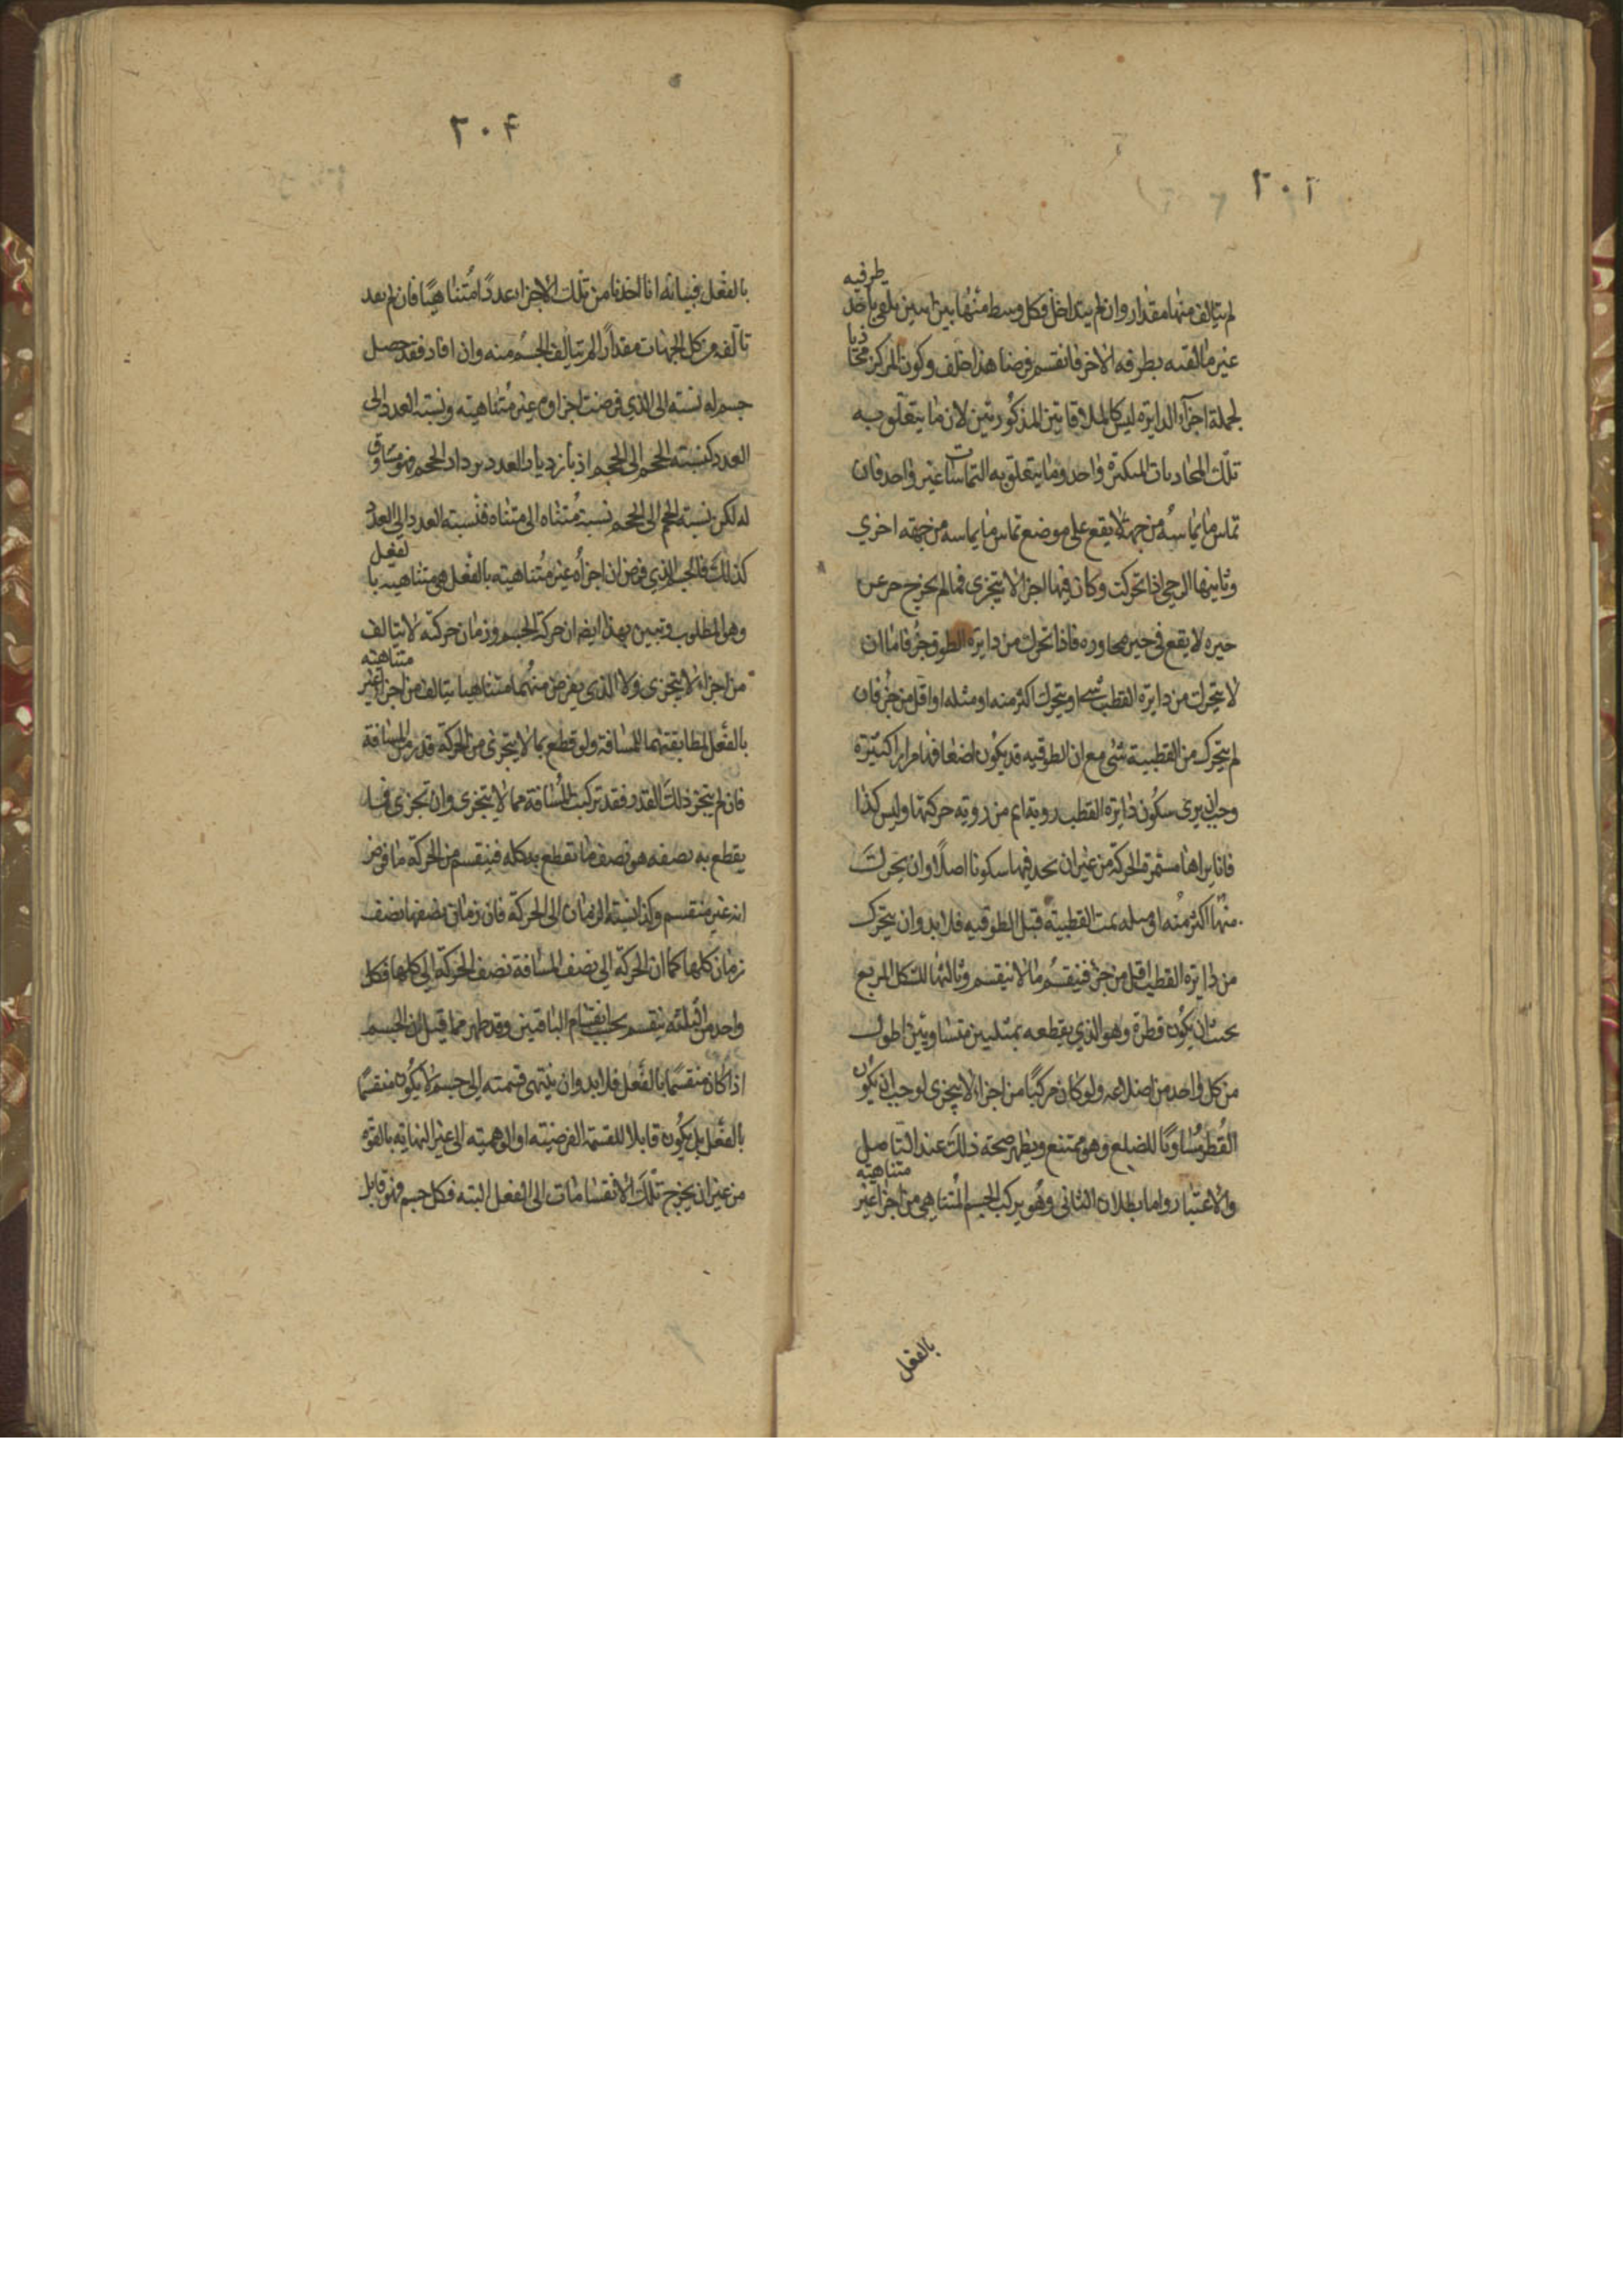 ٢٠٢
لم يتالف منها مقدار وان لم يتداخل فكل وسط منها بين اسين يلقى باحد طرفيه
غير ما لقته بطرفه الاخر فانقسم فرضا هذا خلف وكون المركز محاذيا
لجملة اجزآء الدايرة ليس كالملاقاتين المذكورتين لان ما يتعلق به
تلك المحاذيات المتكثرة واحد وما يتعلق به التماسات غير واحد فان
تماس ما يماسه من جهة لا يقع على موضع تماس ما يماسه من جهته اخري
وثانيها الرحي اذا تحركت وكان فيها اجزا لا يتجزى فما لم يخرج جزء عن
حيزه لا يقع في حيز مجاوره فاذا تحرك من دايرة الطوق جزٌ فاما ان
لا يتحرك من دايرة القطب شى او يتحرك اكثر منه او مثله او اقل من جزٍ فان
لم يتحرك من القطبية شى مع ان الطوقيه قد يكون اضعافها مرارا كثيرة
وجب ان يرى سكون دايرة القطب روية اتم من روية حركتها وليس كذا
فانا نراها مستمرة الحركة من غير ان نجد فيها سكونا اصلاً وان تحركتَ
منها اكثر منه او مثله تمت القطبية قبل الطوقيه فلا بد وان يتحرك
من دايرة القطب اقل من جزٍ فينقسم ما لا ينقسم وثالثها الشكل المربع
يجب ان يكون قطره وهو الذي يقطعه بمثلثين متساويين اطول
من كل واحد من اضلاعه ولو كان مركبًا من اجزاء لا يتجزى لوجب ان يكون
القطر مساويًا للضلع وهو ممتنع ويظهر صحة ذلك عند التامل
والاعتبار واما بطلان الثانى وهو تركب الجسم المتناهي من اجزا غير متناهيته
بالفعل
٢٠۴
بالفعل فبيانه انا اخذنا من تلك الاجزاء عددًا متناهيًا فان لم يفد
تالفه من كل الجهات مقداراً لم يتالف الجسم منه وان افاد فقد حصل
جسم له نسبته الى الذي فرضت اجزاوه غير متناهيته ونسبته العدد الى
العدد كنسبته الحجم الى الحجم اذ بازدياد العدد يزداد الحجم فهو مساوق
له لكن نسبته الحجم الى الحجم نسبة متناه الى متناه فنسبته العدد الى العدد
كذلك فالجسم الذي فرض ان اجزاه غير متناهيته بالفعل هى متناهيته بالفعل
وهو المطلوب وتبين بهذا ايضا ان حركة الجسم وزمان حركته لا يتالف
من اجزاء لا يتجزى ولا الذي يفرض منهما متناهيا يتالف من اجزا غير متناهيته
بالفعل لمطابقتهما للمسافة ولو قطع بما لا يتجزى من الحركة قدر من المسافة
فان لم يتجز ذلك القدر فقد تركبت المسافة مما لا يتجزى وان تجزى فما
يقطع به نصفه هو نصف ما تقطع به كله فينقسم من الحركة ما فرض
انه غير منقسم وكذا نسبته الزمان الى الحركة فان زمان نصفها نصف
زمان كلها كما ان الحركة الى نصف المسافة نصف الحركة الى كلها فكل
واحد من الثلثه ينقسم بحسب انقسام الباقيين وقد ظهر مما قيل ان الجسم
اذا كان منقسمًا بالفعل فلا بد وان ينتهى قسمته الى جسم لا يكون منقسمًا
بالفعل بل يكون قابلا للقسمة الفرضيته او الوهميته الى غير النهايته بالقوه
من غير ان يخرج تلك الانقسامات الى الفعل البته فكل جسم فهو قابل